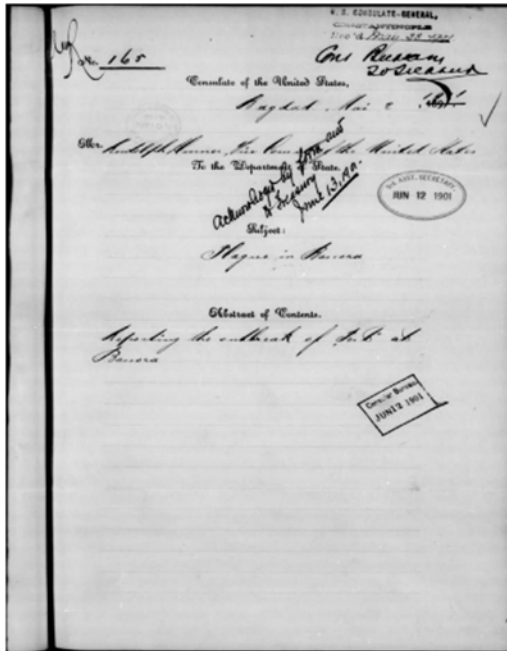 No. 165
U. S. CONSULATE-GENERAL,
CONSTANTINOPLE
Consulate of the United States,
Bagdad, Mai 2 1901
Mr. Rudolph Hurner, Vice Consul of the United States
To the Department of State.
acknowledged by form and
to Treasury
June 13, 1901.
JUN 12 1901
Subject:
Plague in Bassora
Abstract of Contents.
Reporting the outbreak of at
Bassora
Consular Bureau
JUN 12 1901